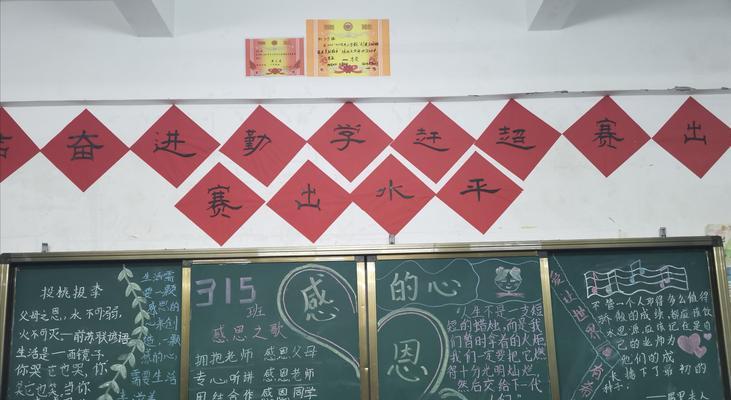 奋进勤学赶超赛出
赛出水平
投桃报李
父母之恩，水不可溺，
火不可灭。—前苏联谚语
生活是一面镜子
你哭它也哭，你
笑它也笑，当你
生活需
要一颗
感恩的
心来创
一颗
的心
需要生活
315
班
感恩之歌
拥抱老师 感恩父母
专心听讲 感恩老师
团结合作 感恩同学
感
恩
的心
人生不是一支短
短的蜡烛，而是我
们暂时拿着的火炬
我们一定要把它燃
得十分光明灿烂，
然后交给下一代
人们
爱让世界
不管一个人取得多么值得
骄傲的成绩，都应该饮
水思源，应该记住是自
己的老师为
他们的成
长播下了最初的
种子。
居里夫人